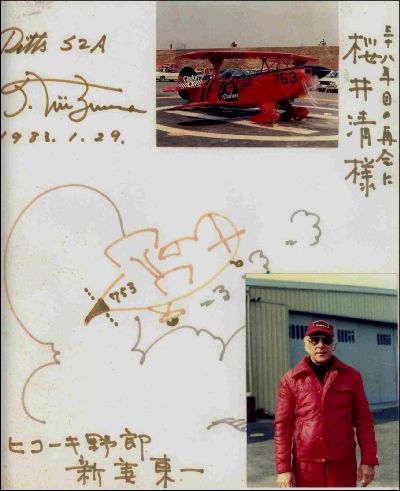 Pitts S2A
T. Niizuma
1983.1.29.
三十八年目の再会に
桜井清様
Clarion
753
753
ヒコーキ野郎
新妻東一